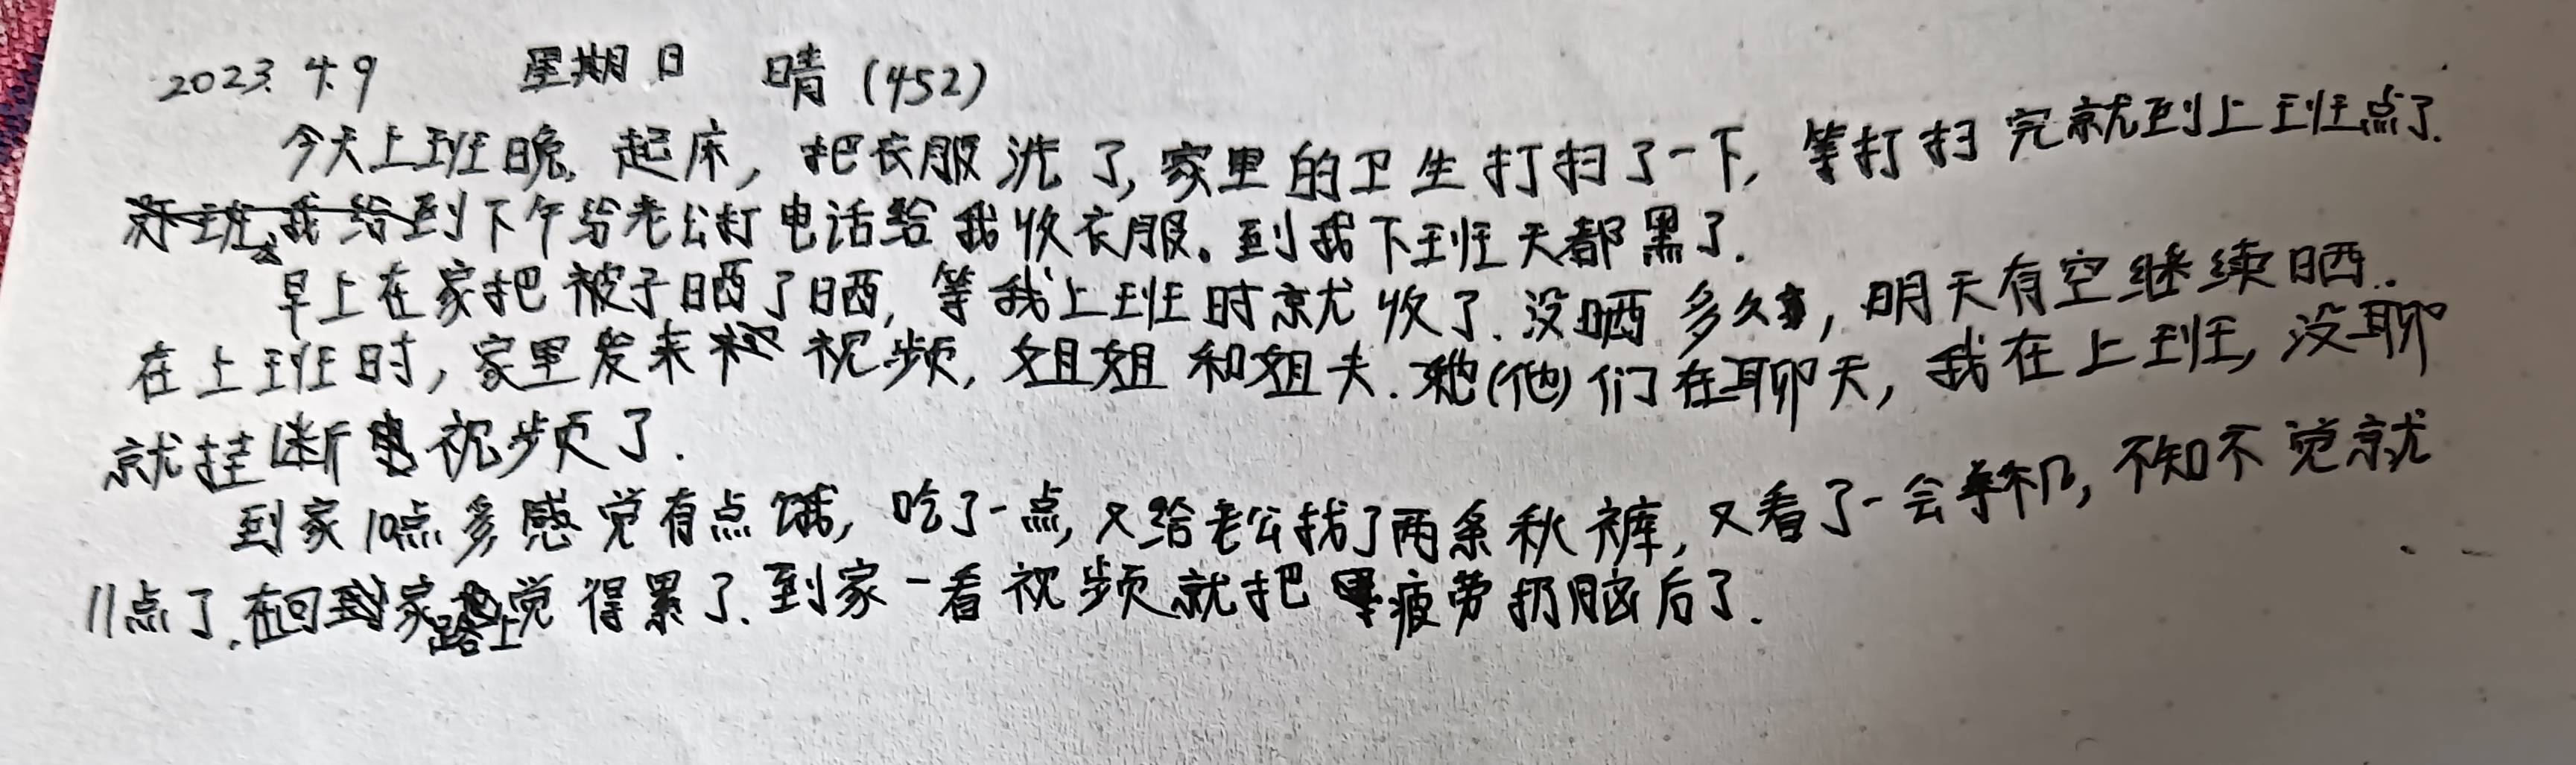 2023.4.9 星期日 晴(452)
今天上班晚。起床,把衣服洗了,家里的卫生打扫了一下,等打扫完就到上班点了.
到下午给老公打电话给我收衣服。到我下班天都黑了.
早上在家把被子晒了晒,等我上班时就收了.没晒多久,明天有空继续晒.
在上班时,家里发来视频,姐姐和姐夫.她(他)们在聊天,我在上班,没聊
就挂断视频了.
到家10点多感觉有点饿,吃了一点,又给老公找了两条秋裤,又看了一会手机,不知不觉就
11点了.在回家路上觉得累了.到家一看视频就把疲劳扔脑后了.